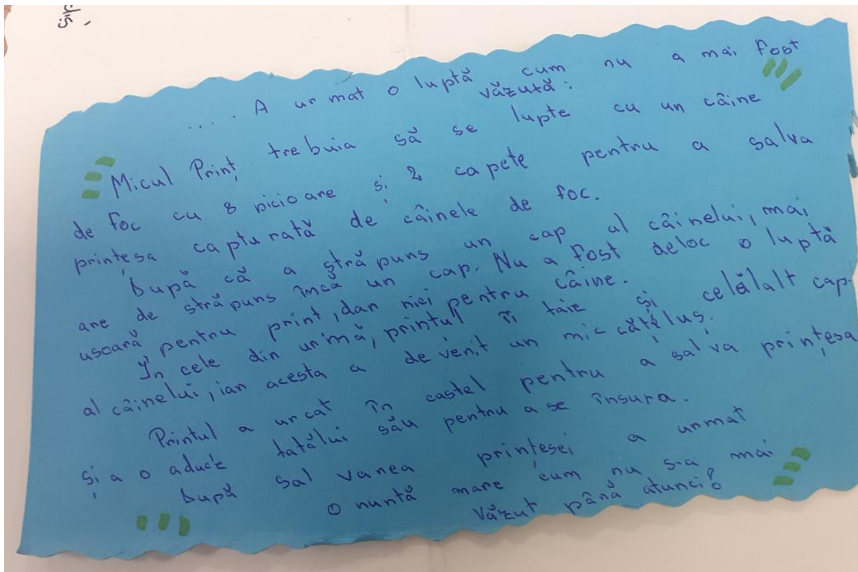 .... A urmat o luptă cum nu a mai fost
văzută:
Micul Prinț trebuia să se lupte cu un câine
de foc cu 8 picioare și 2 capete pentru a salva
prințesa capturată de câinele de foc.
După că a străpuns un cap al câinelui, mai
are de străpuns încă un cap. Nu a fost deloc o luptă
uscară pentru print, dar nici pentru câine.
În cele din urmă, printul îi taie și celălalt cap
al câinelui, iar acesta a devenit un mic cățeluș.
Printul a urcat în castel pentru a salva prințesa
și a o aduce tatălui său pentru a se însura.
După salvarea prințesei a urmat
o nuntă mare cum nu s-a mai
văzut până atunci!